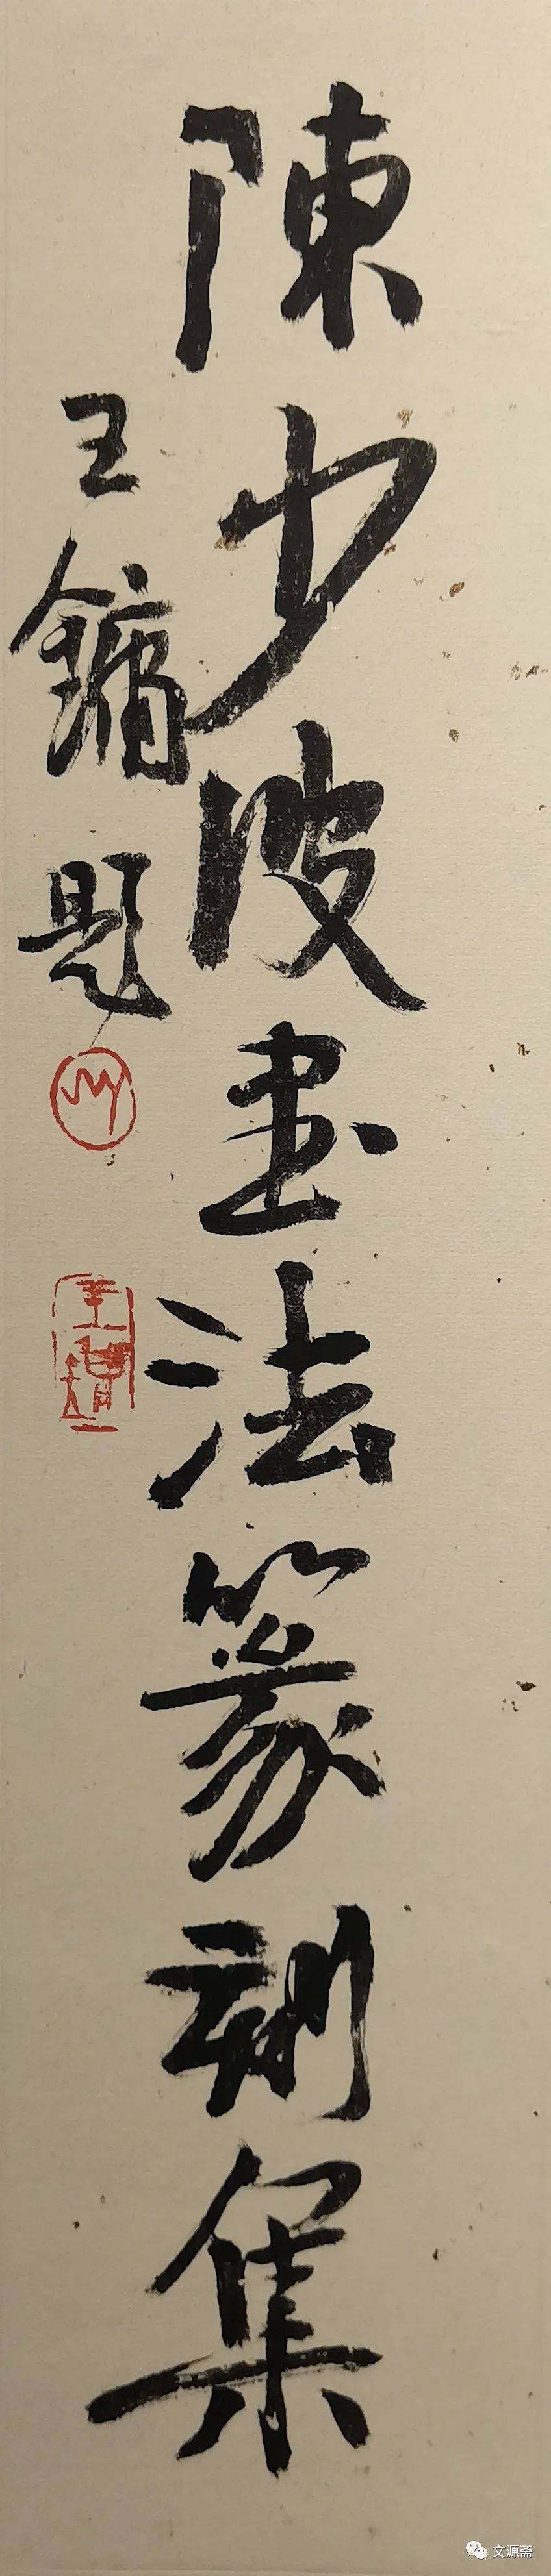 陳少波書法篆刻集
王鏞題
文源斋